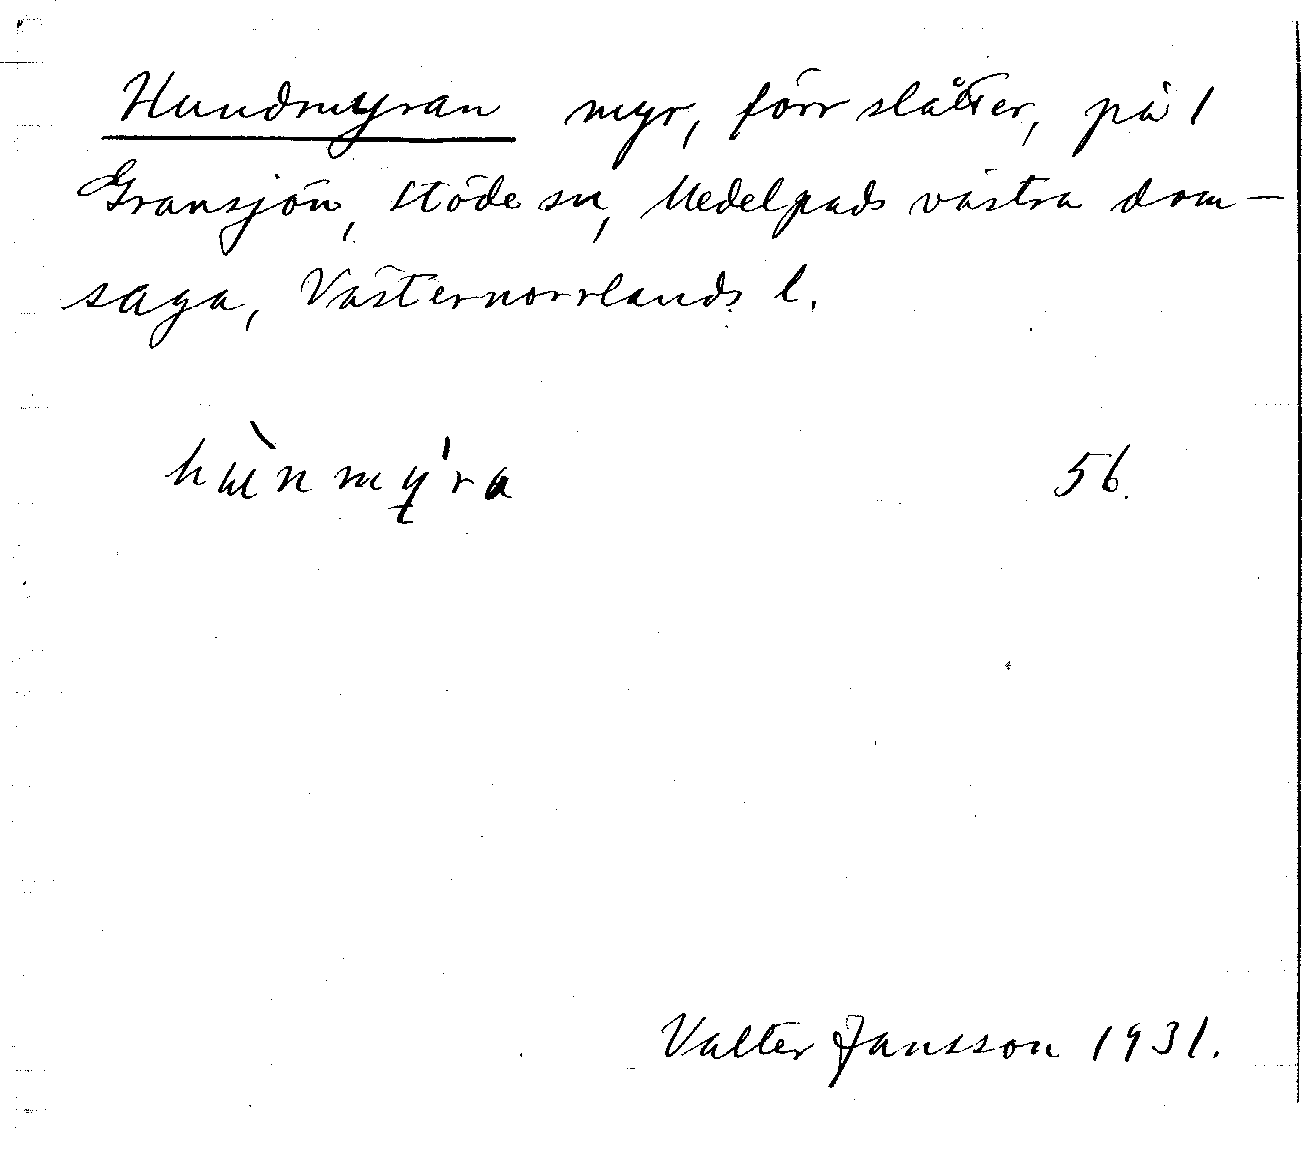 Hundmyran myr, förr slåtter, på 1
Gransjön, Stöde sn, Medelpads västra dom-
saga, Västernorrlands l.
hùnmy̱ˈra
56.
Valter Jansson 1931.